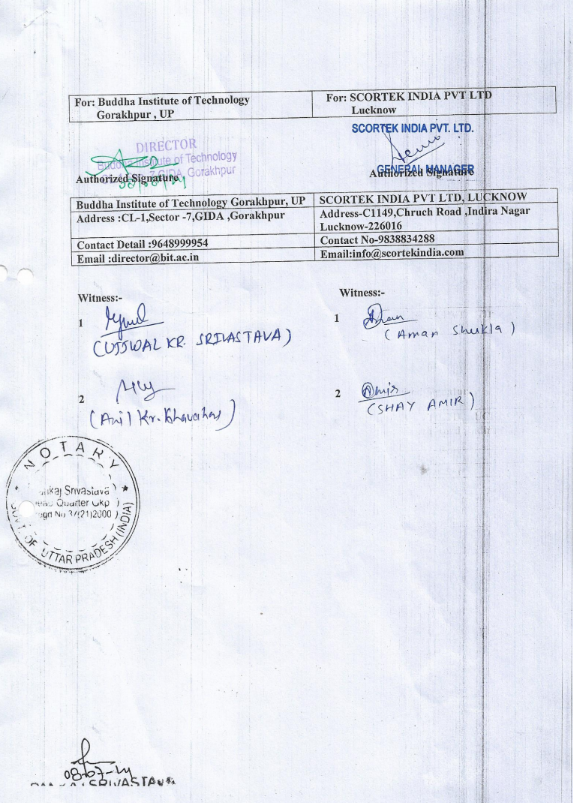 For: Buddha Institute of Technology
Gorakhpur , UP
For: SCORTEK INDIA PVT LTD
Lucknow
SCORTEK INDIA PVT. LTD.
DIRECTOR
Institute of Technology
GIDA, Gorakhpur
Authorized Signature
GENERAL MANAGER
Authorized Signature
Buddha Institute of Technology Gorakhpur, UP
Address :CL-1,Sector -7,GIDA ,Gorakhpur
Contact Detail :9648999954
Email :director@bit.ac.in
SCORTEK INDIA PVT LTD, LUCKNOW
Address-C1149,Chruch Road ,Indira Nagar
Lucknow-226016
Contact No-9838834288
Email:info@scortekindia.com
Witness:-
1
(UJJWAL KR. SRIVASTAVA)
2
(Anil Kr.
Witness:-
1 Aman
(Aman Shukla)
2 Amir
(SHAY AMIR)
NOTARY
Srivastava
Quarter Gkp
GOVT. OF UTTAR PRADESH (INDIA)
SRIVASTAVA